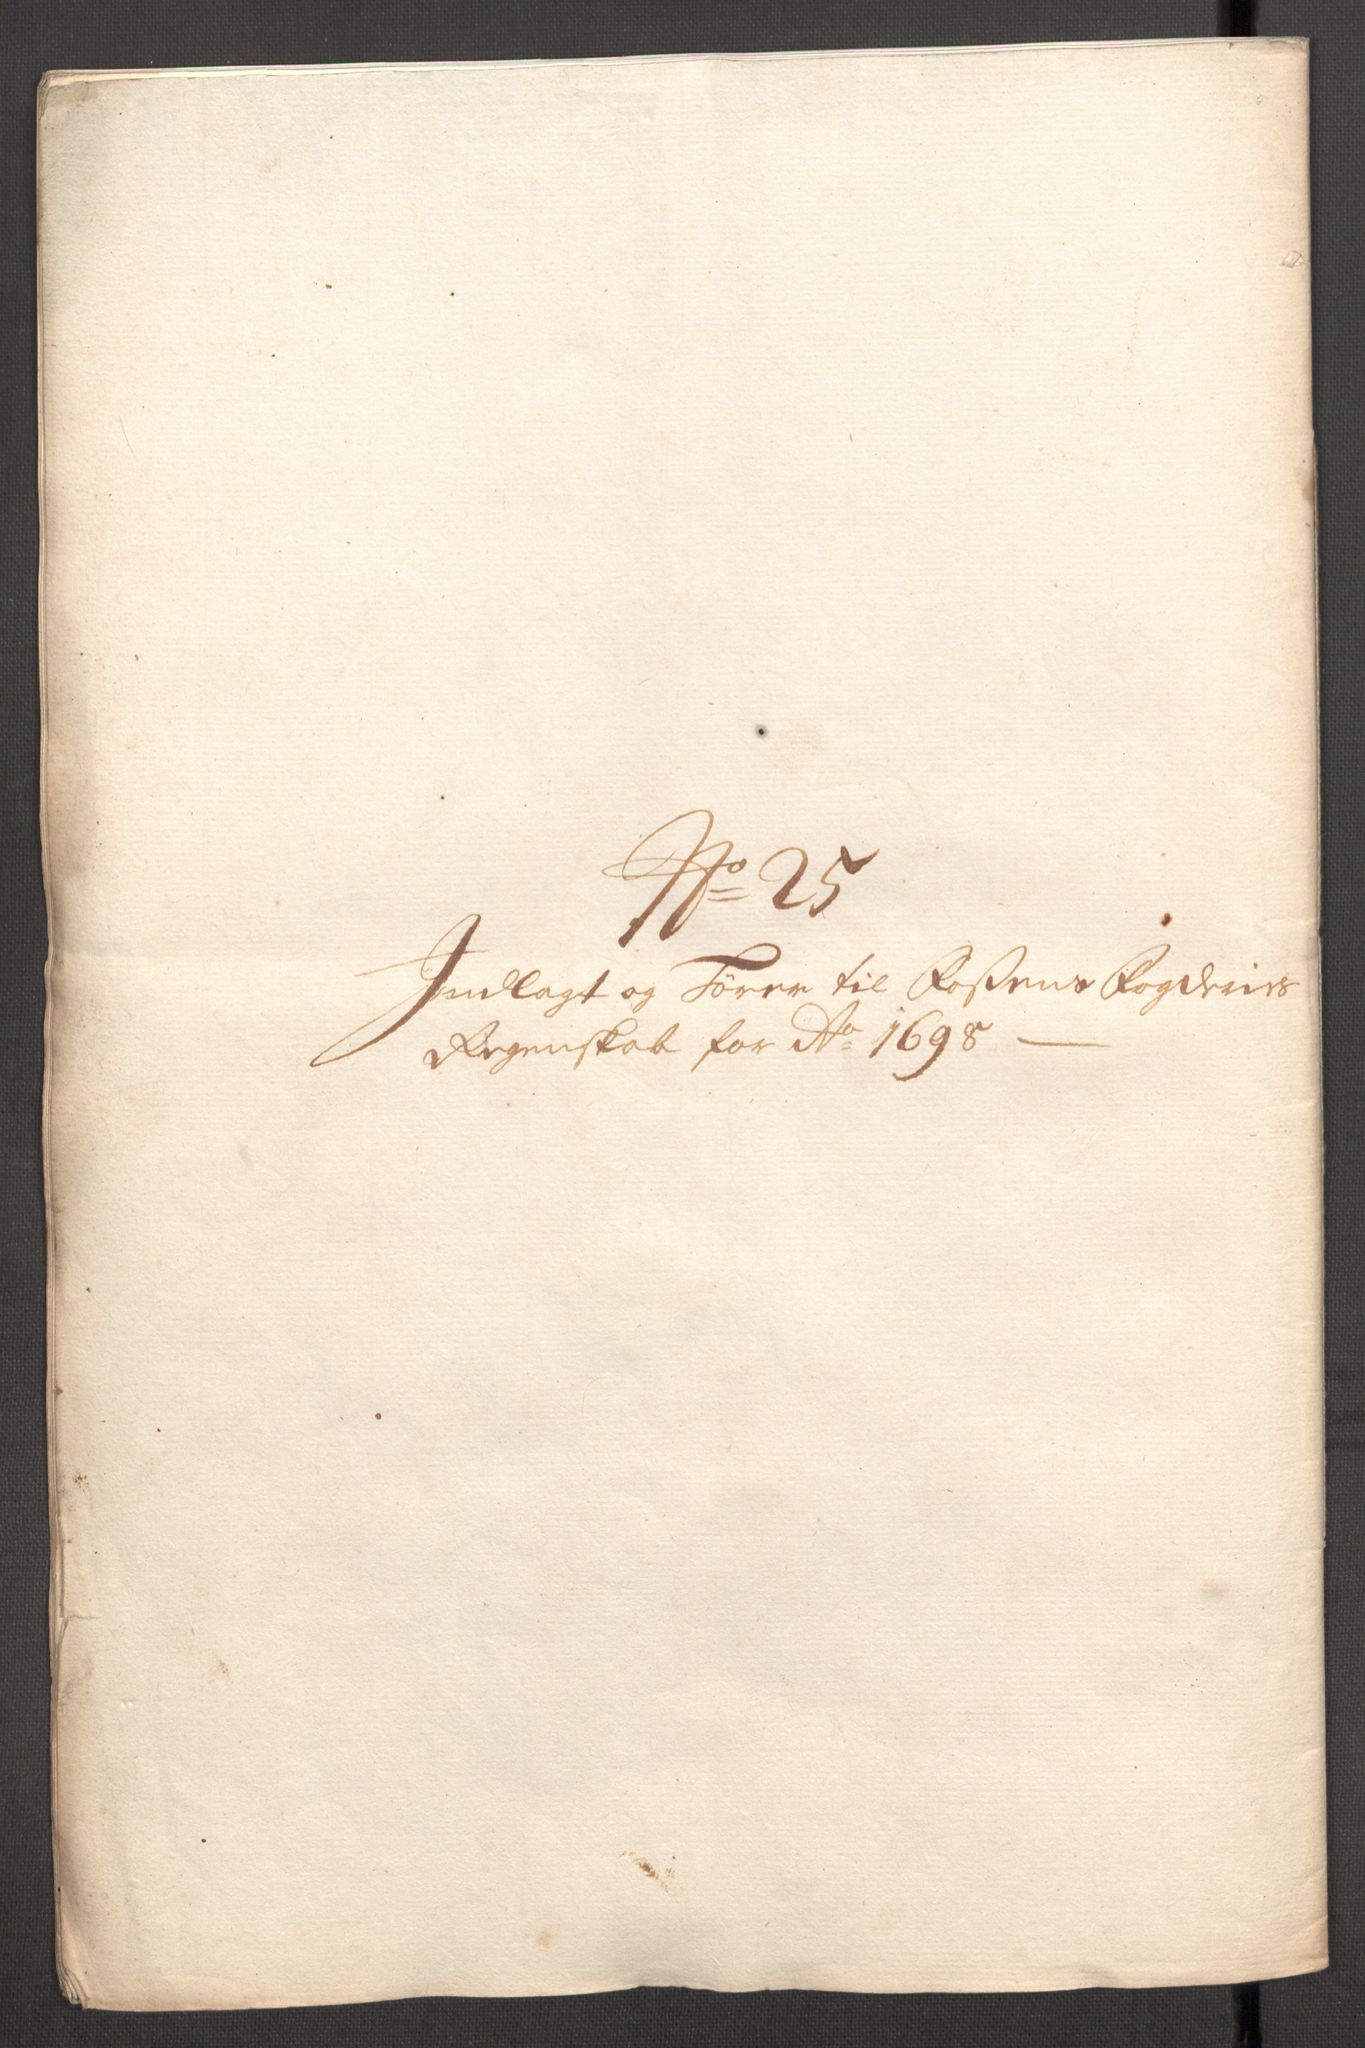 No 25
Indlagt og Förer til Foßens Fogderies
Regenskab for Ao 1698